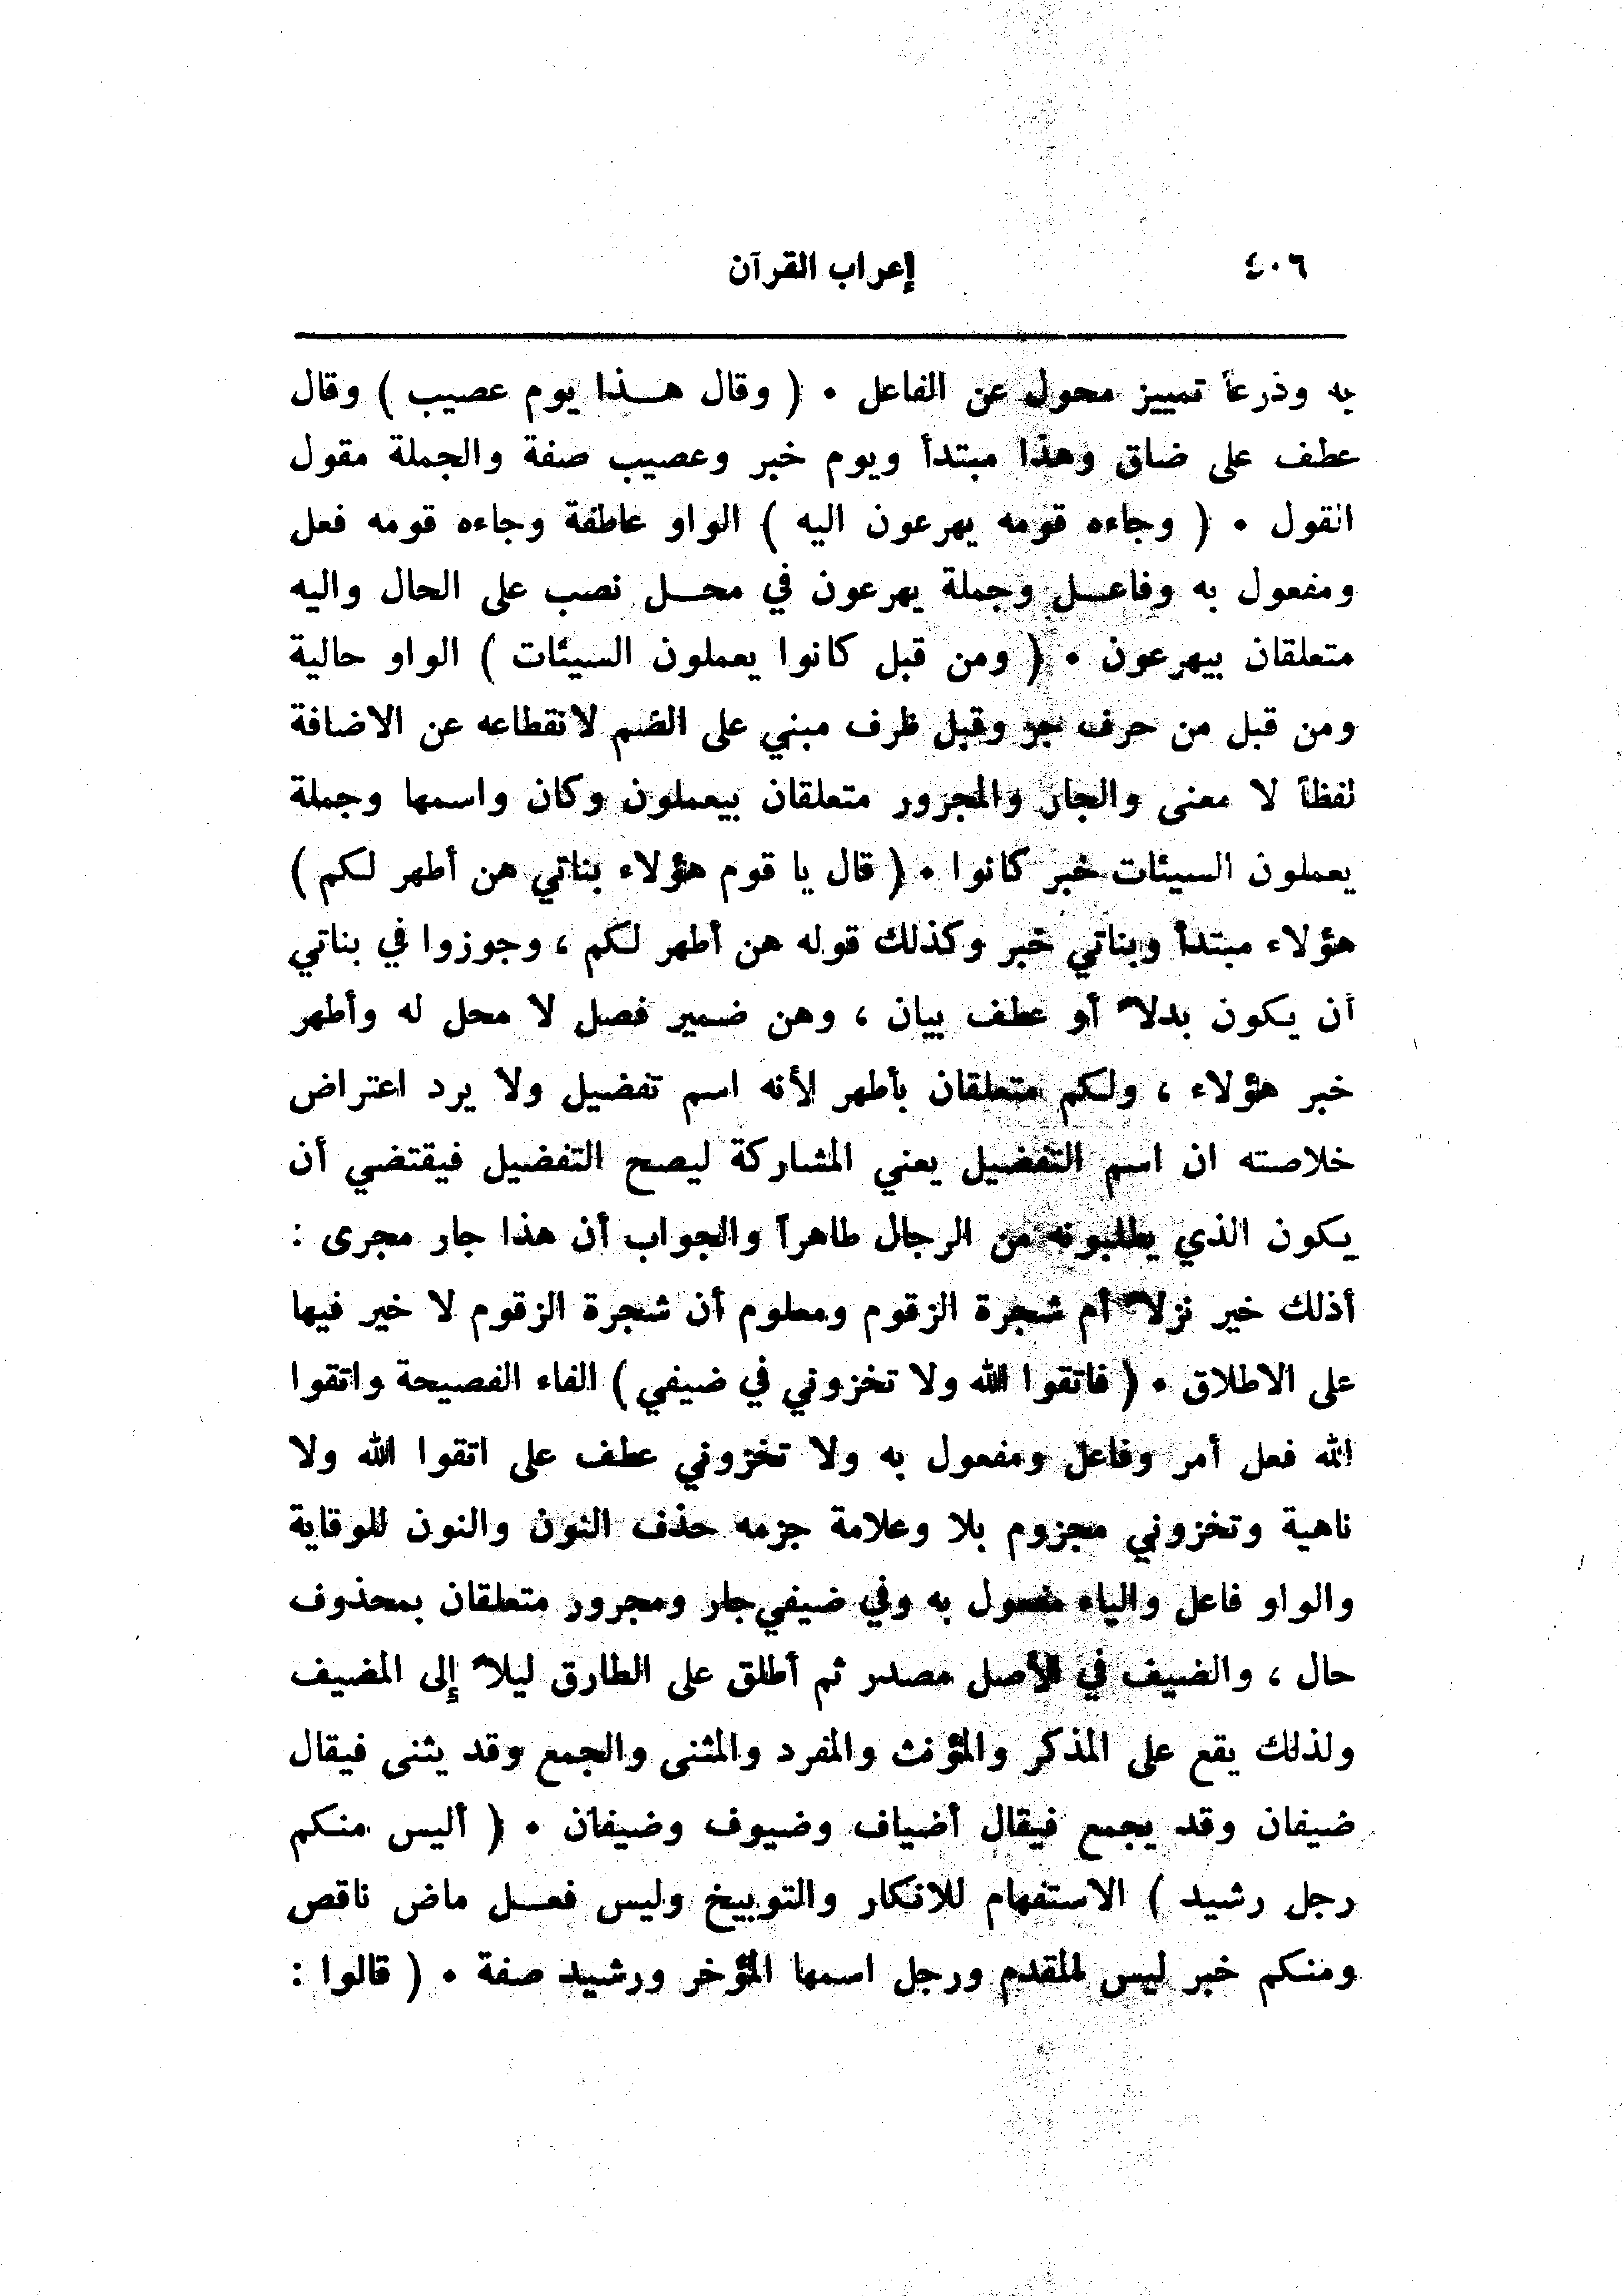 ٤٠٦ إعراب القرآن
به وذرعاً تمييز محول عن الفاعل . ( وقال هــذا يوم عصيب ) وقال
عطف على ضاق وهذا مبتدأ ويوم خبر وعصيب صفة والجملة مقول
القول . ( وجاءه قومه يهرعون اليه ) الواو عاطفة وجاءه قومه فعل
ومفعول به وفاعــل وجملة يهرعون في محــل نصب على الحال واليه
متعلقان بيهرعون . ( ومن قبل كانوا يعملون السيئات ) الواو حالية
ومن قبل من حرف جر وقبل ظرف مبني على الضم لانقطاعه عن الاضافة
لفظاً لا معنى والجار والمجرور متعلقان بيعملون وكان واسمها وجملة
يعملون السيئات خبر كانوا . ( قال يا قوم هؤلاء بناتي هن أطهر لكم )
هؤلاء مبتدأ وبناتي خبر وكذلك قوله هن أطهر لكم ، وجوزوا في بناتي
أن يكون بدلاً أو عطف بيان ، وهن ضمير فصل لا محل له وأطهر
خبر هؤلاء ، ولكم متعلقان بأطهر لأنه اسم تفضيل ولا يرد اعتراض
خلاصته ان اسم التفضيل يعني المشاركة ليصح التفضيل فيقتضي أن
يكون الذي يطلبونه من الرجال طاهراً والجواب أن هذا جار مجرى :
أذلك خير نزلاً أم شجرة الزقوم ومعلوم أن شجرة الزقوم لا خير فيها
على الاطلاق . ( فاتقوا الله ولا تخزوني في ضيفي ) الفاء الفصيحة واتقوا
الله فعل أمر وفاعل ومفعول به ولا تخزوني عطف على اتقوا الله ولا
ناهية وتخزوني مجزوم بلا وعلامة جزمه حذف النون والنون للوقاية
والواو فاعل والياء مفعول به وفي ضيفي جار ومجرور متعلقان بمحذوف
حال ، والضيف في الأصل مصدر ثم أطلق على الطارق ليلاً إلى المضيف
ولذلك يقع على المذكر والمؤنث والمفرد والمثنى والجمع وقد يثنى فيقال
ضيفان وقد يجمع فيقال أضياف وضيوف وضيفان . ( أليس منكم
رجل رشيد ) الاستفهام للانكار والتوبيخ وليس فعــل ماض ناقص
ومنكم خبر ليس المقدم ورجل اسمها المؤخر ورشيد صفة . ( قالوا :